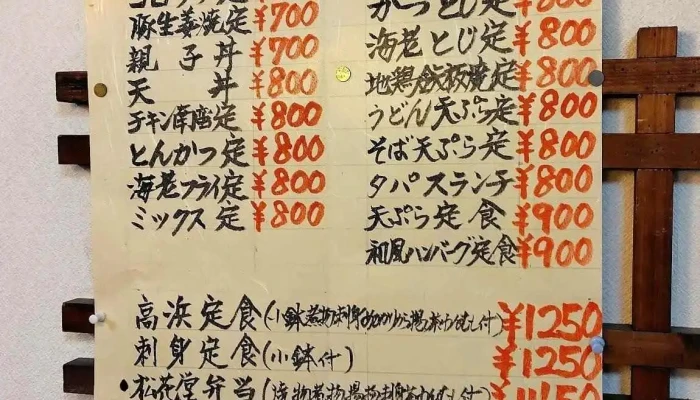 豚生姜焼定 ¥700
親子丼 ¥700
天丼 ¥800
チキン南蛮定 ¥800
とんかつ定 ¥800
海老フライ定 ¥800
ミックス定 ¥800
かつとじ定 ¥800
海老とじ定 ¥800
地鶏鉄板焼定 ¥800
うどん天ぷら定 ¥800
そば天ぷら定 ¥800
タパスランチ ¥800
天ぷら定食 ¥900
和風ハンバーグ定食 ¥900
高浜定食(小鉢煮物刺身 茶わんむし付) ¥1250
刺身定食(小鉢付) ¥1250
・松花堂弁当(焼物煮物揚物刺身茶わんむし付) ¥1150